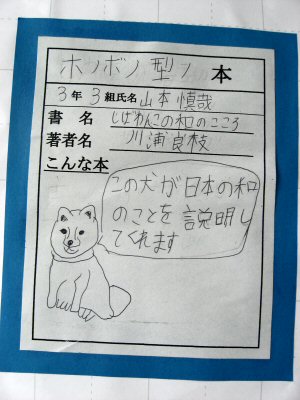 ホノボノ型ノ本
3年3組氏名山本慎哉
書名 しばわんこの和のこころ
著者名 川浦良枝
こんな本
この犬が日本の和
のことを説明し
てくれます